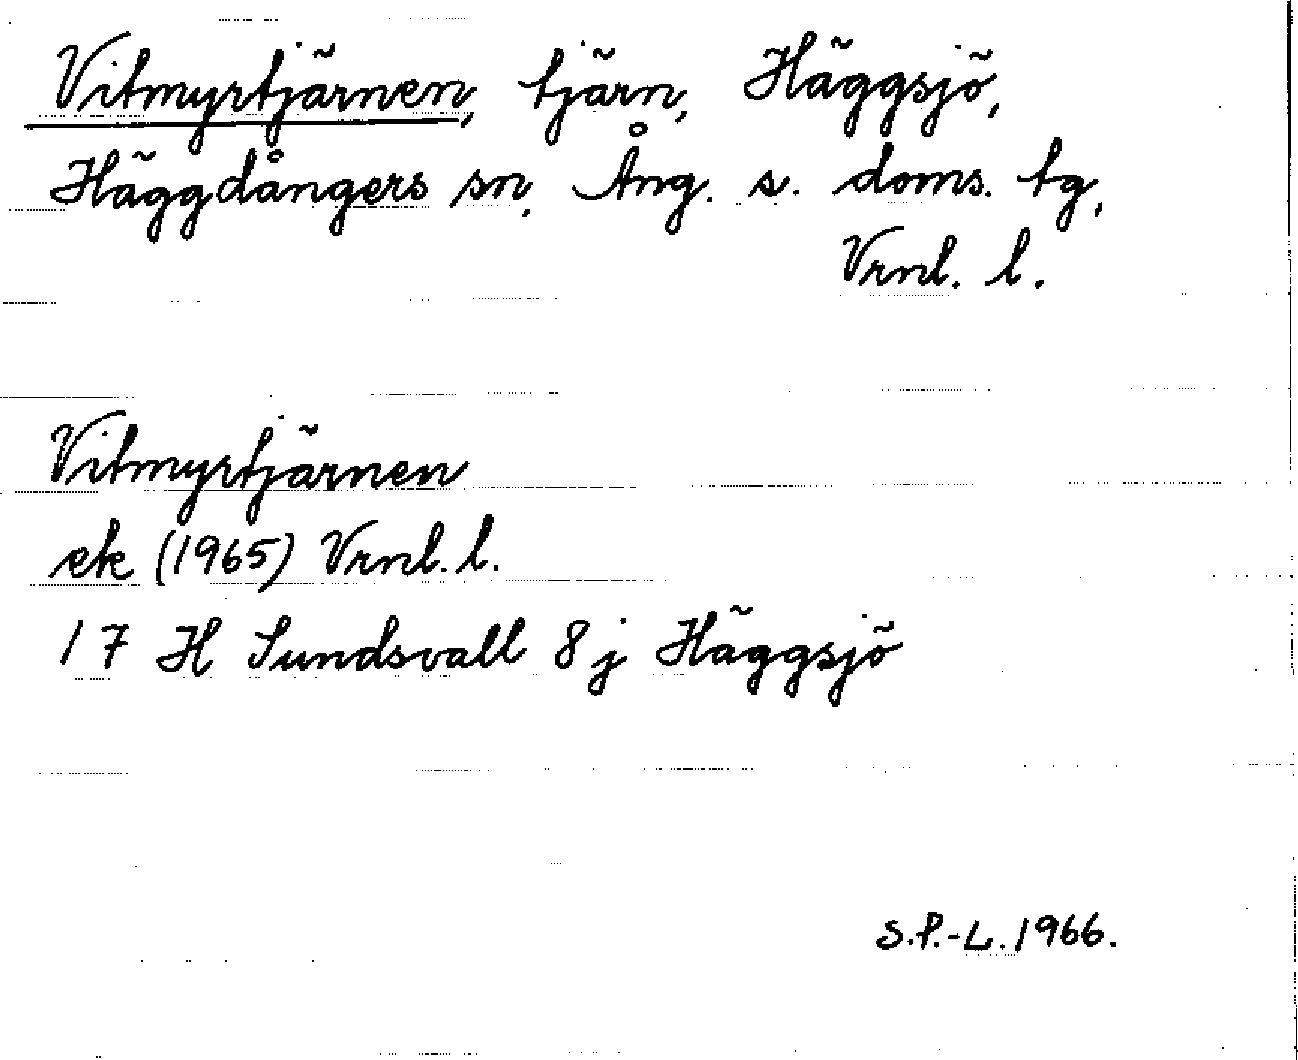 Vitmyrtjärnen, tjärn, Häggsjö,
Häggdångers sn, Ång. s. doms. tg,
Vrnl. l.
Vitmyrtjärnen
ek (1965) Vrnl. l.
17 H Sundsvall 8 j Häggsjö
S.P.-L. 1966.